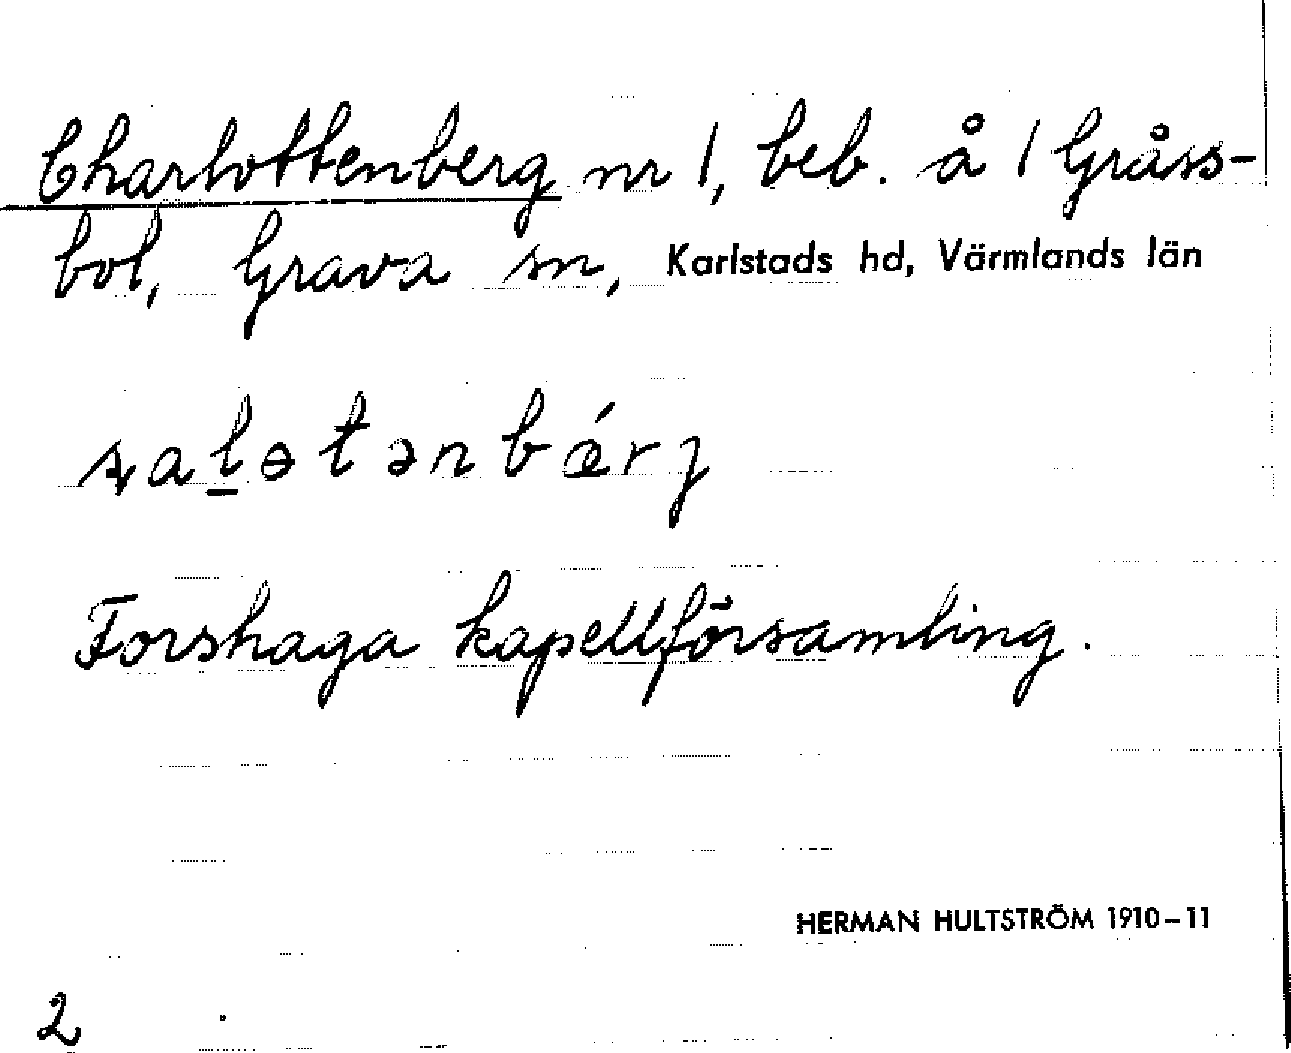 Charlottenberg nr 1, beb. å 1 Gråss-
bol, Grava sn, Karlstads hd, Värmlands län
ʂal̠ɵtənbǽrj
Forshaga kapellförsamling.
HERMAN HULTSTRÖM 1910-11
2